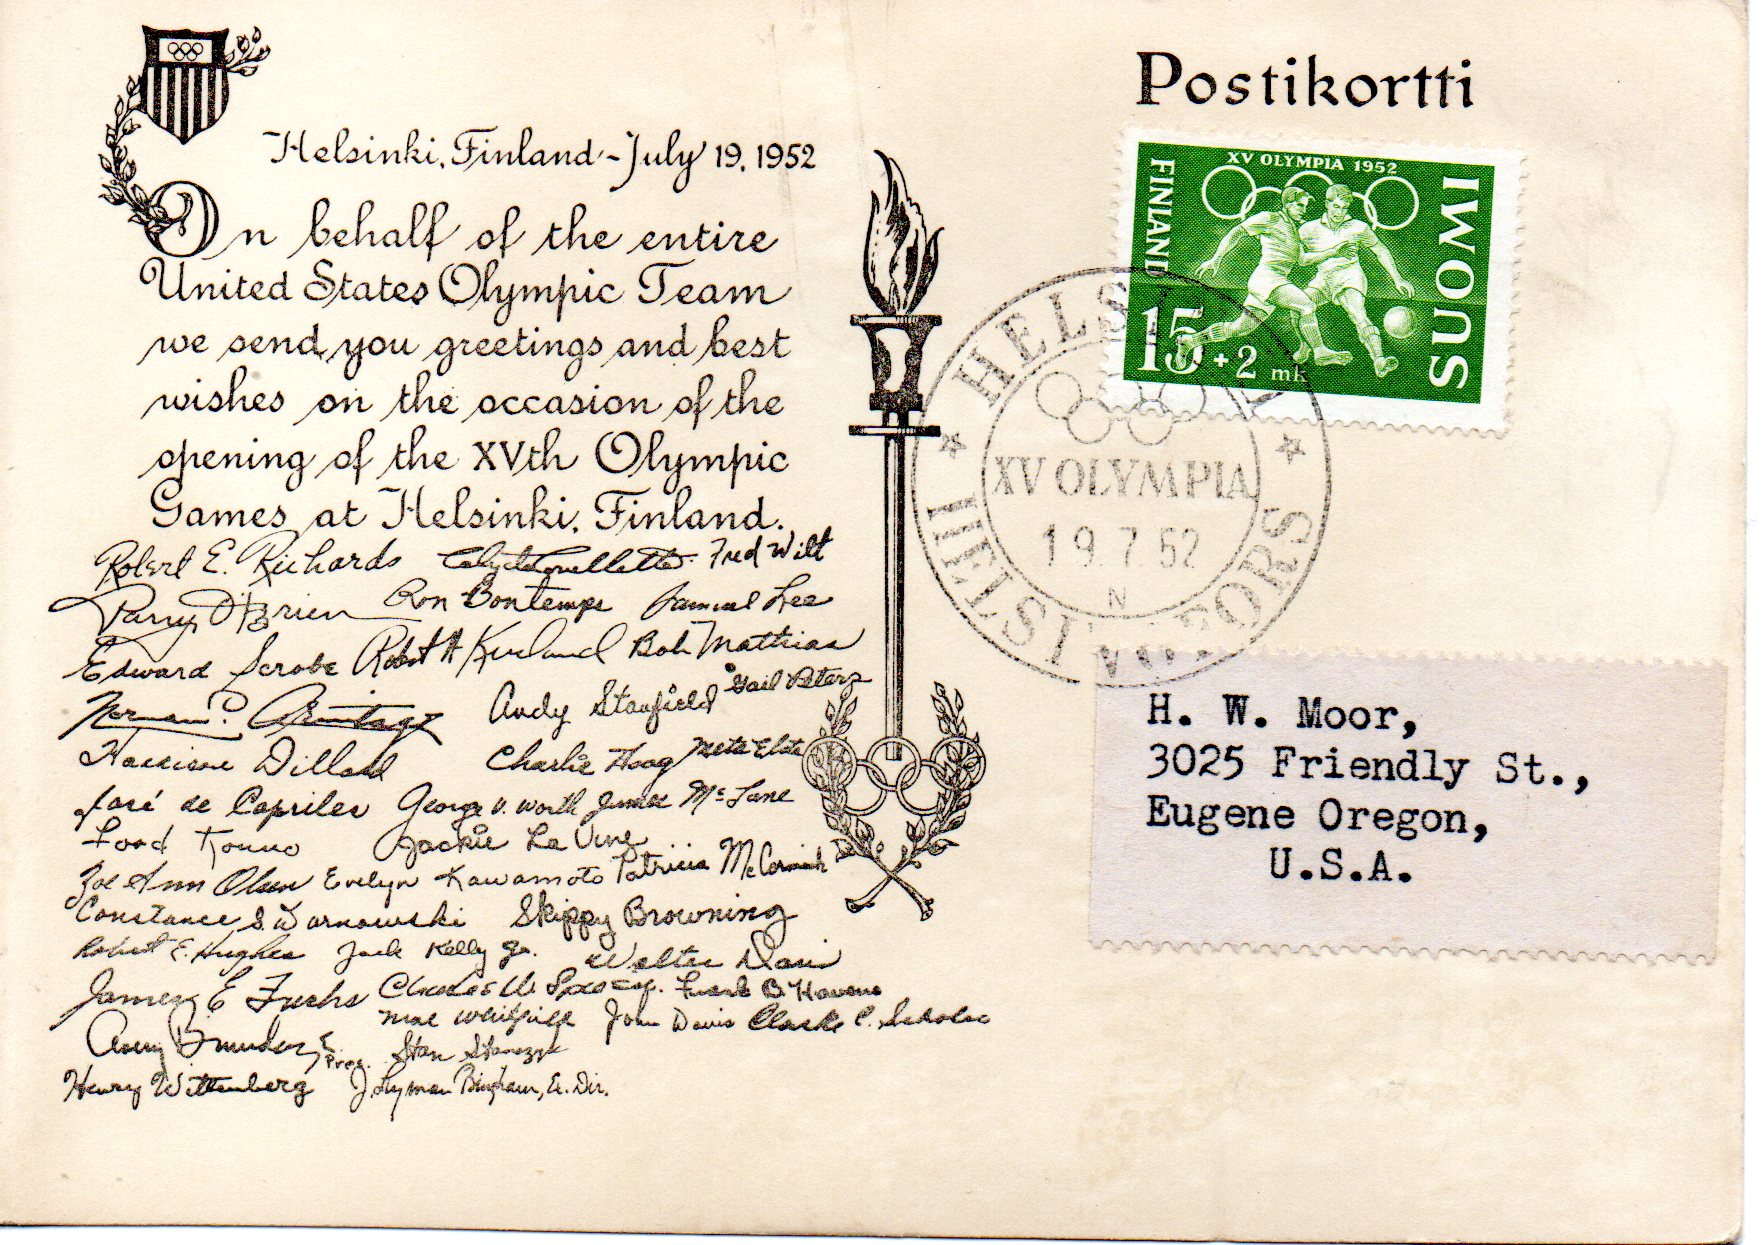 Helsinki, Finland - July 19, 1952
On behalf of the entire
United States Olympic Team
we send you greetings and best
wishes on the occasion of the
opening of the XVth Olympic
Games at Helsinki, Finland.
Robert E. Richards Fred Wilt
Parry O'Brien Ron Bontemps Samuel Lee
Edward Scrobe Robert H Bob Mathias
Norman C. Armitage Andy Stanfield Gail Peters
Harrison Dillard Charlie Hoag
José de Capriles George V. Worth James McLane
Ford Konno Jackie La Vine
Zoe Ann Olsen Evelyn Kawamoto Patricia McCormick
Constance S. Skippy Browning
Robert E. Hughes Jack Kelly Jr. Walter Davis
James E Fuchs Charles W. Frank B Havens
Mal Whitfield John Davis Clarke C. Scholes
Avery Brundage Pres. Stan Stanczyk
Henry Wittenberg J Lyman Bingham, Ex. Dir.
Postikortti
XV OLYMPIA 1952
FINLAND
SUOMI
15 + 2 mk
HELSINKI
XV OLYMPIA
19.7.52
N
HELSINGFORS
H. W. Moor,
3025 Friendly St.,
Eugene Oregon,
U.S.A.